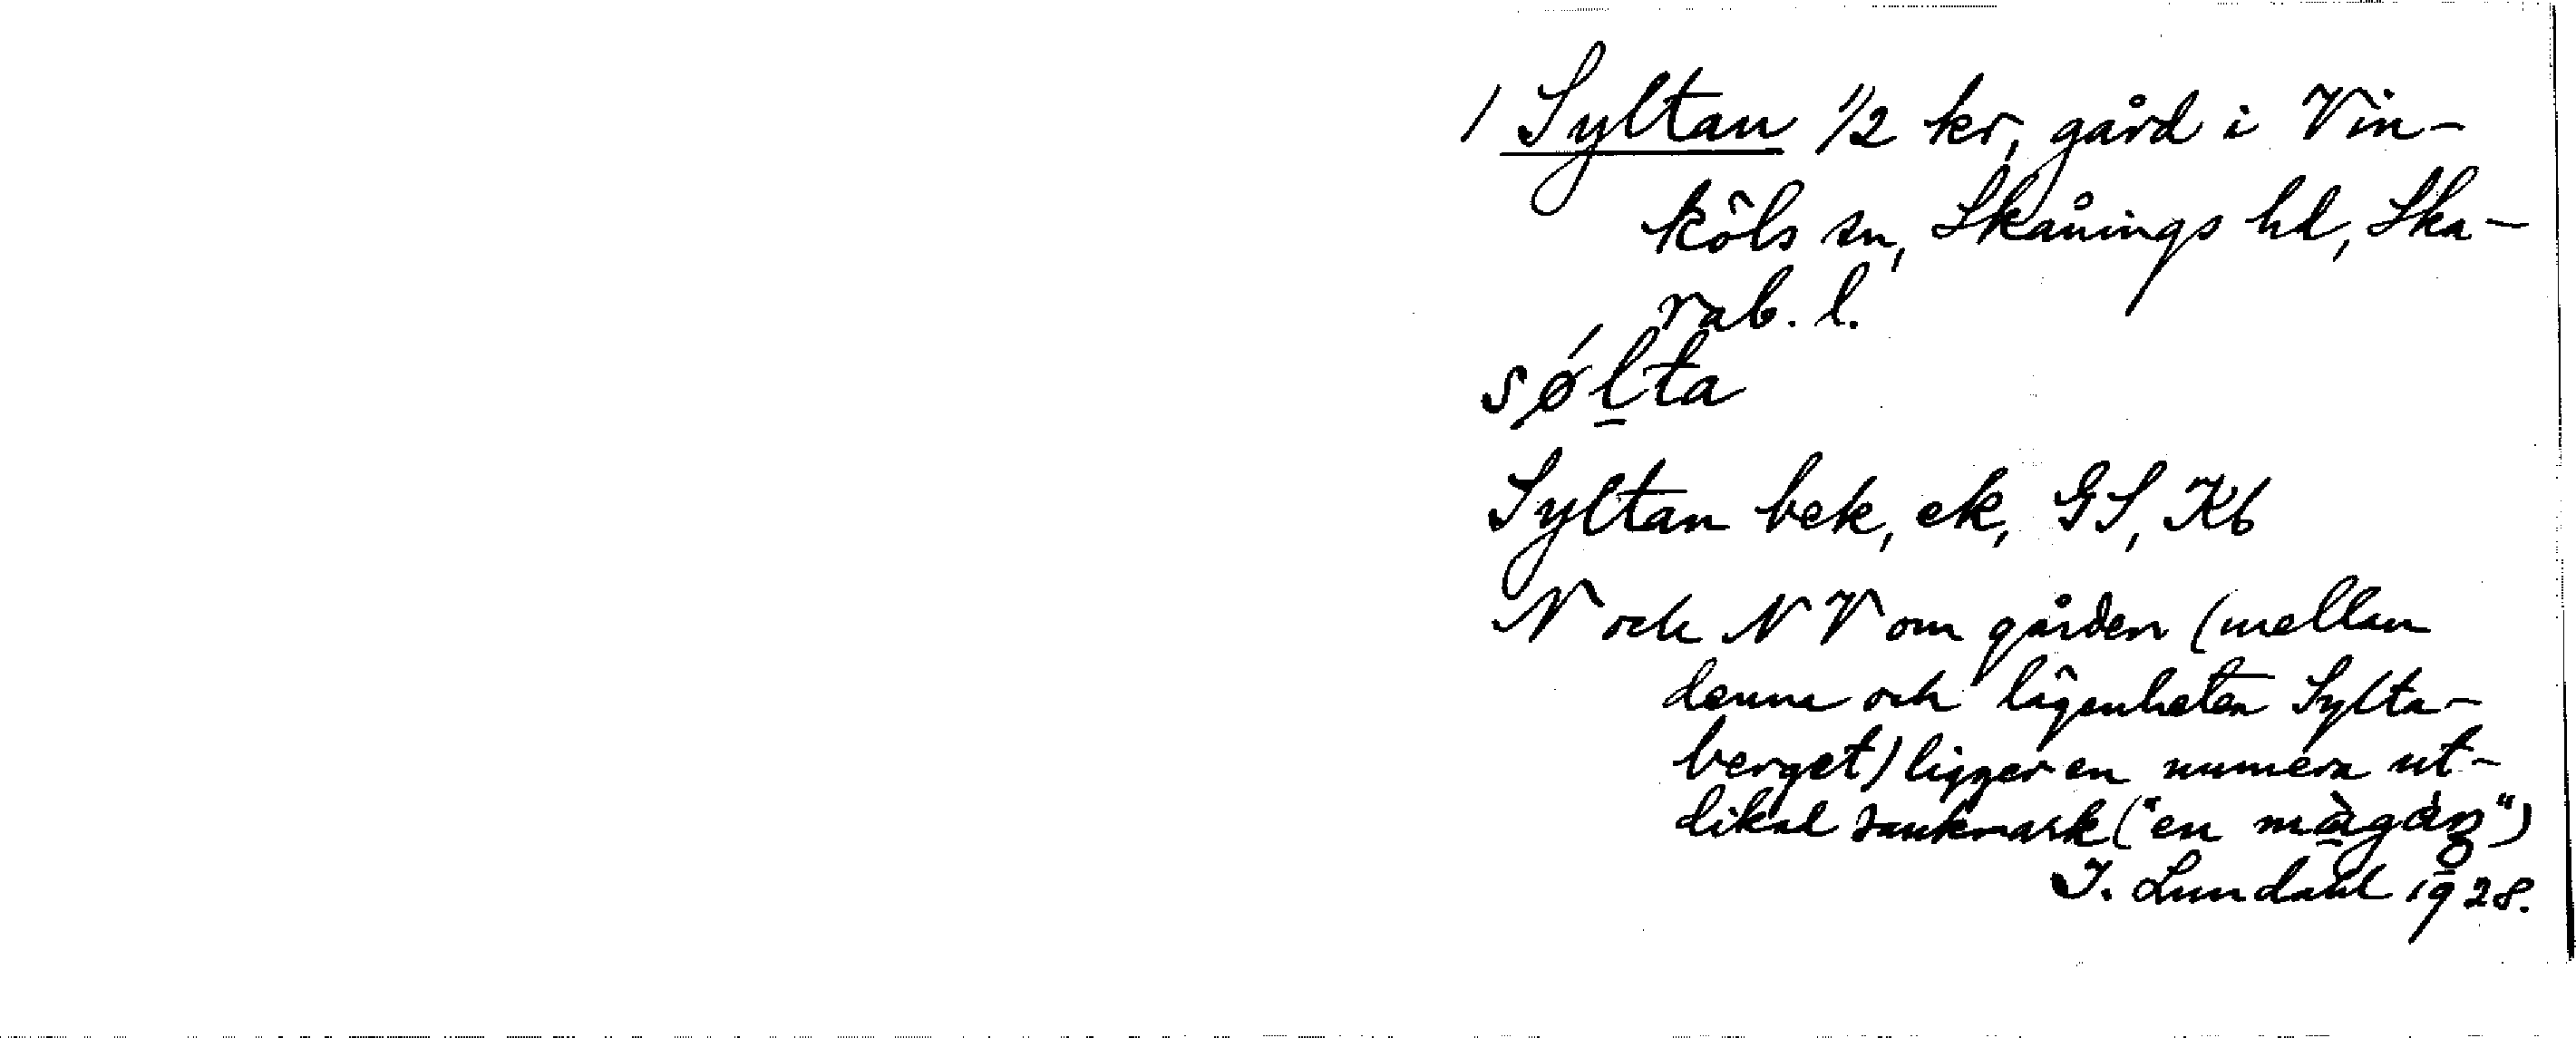 / Syltan 1/2 kr, gård i Vin-
köls sn, Skånings hd, Ska-
rab. l.
sǿl̠ta
Syltan bek, ek, GS, Kb
N och NV om gården (mellan
denna och lägenheten Sylta-
berget) ligger en numera ut-
dikad sankmark ("en
I. Lundahl 1928.